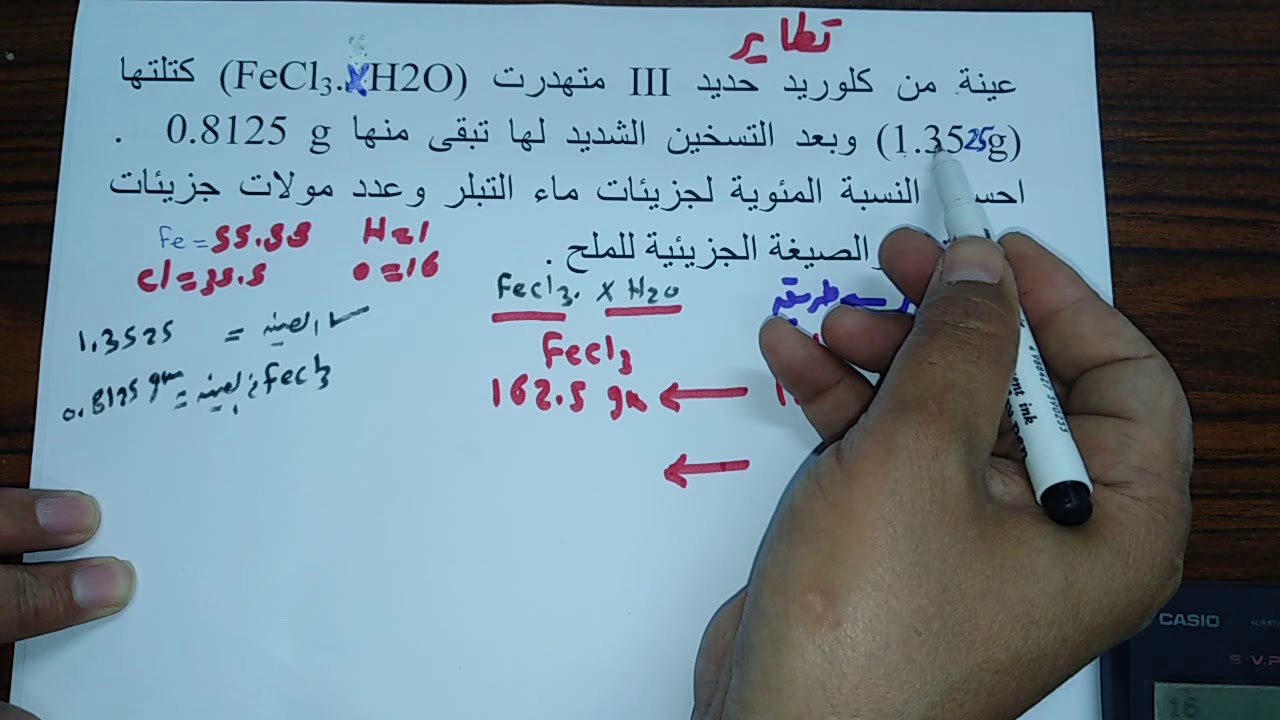 تطاير
عينة من كلوريد حديد III متهدرت (FeCl3.XH2O) كتلتها
(1.3525g) وبعد التسخين الشديد لها تبقى منها 0.8125 g .
النسبة المئوية لجزيئات ماء التبلر وعدد مولات جزيئات
والصيغة الجزيئية للملح .
Fe = 55.85 H=1
Cl=35.5 O=16
FeCl3. X H2O
طريقة
FeCl3
162.5 gm ←
←
العينة = 1.3525
FeCl3 = 0.8125 gm
CASIO
S-V.P
16